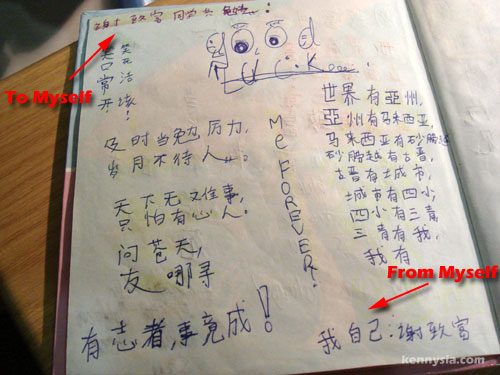 谢致富
To Myself
笑口常开
GOOD
LUCK...
及时当勉厉力,
岁月不待人...
天下无难事,
只怕有心人.
问苍天,
友哪寻
有志者,事竟成!
ME FOREVER!
世界有亞州,
亞州有马来西亚,
马来西亚有砂朥越
砂朥越有古晋,
古晋有城市,
城市有四小,
四小有三青,
三青有我,
我有
From Myself
我自己:谢致富
kennysia.com